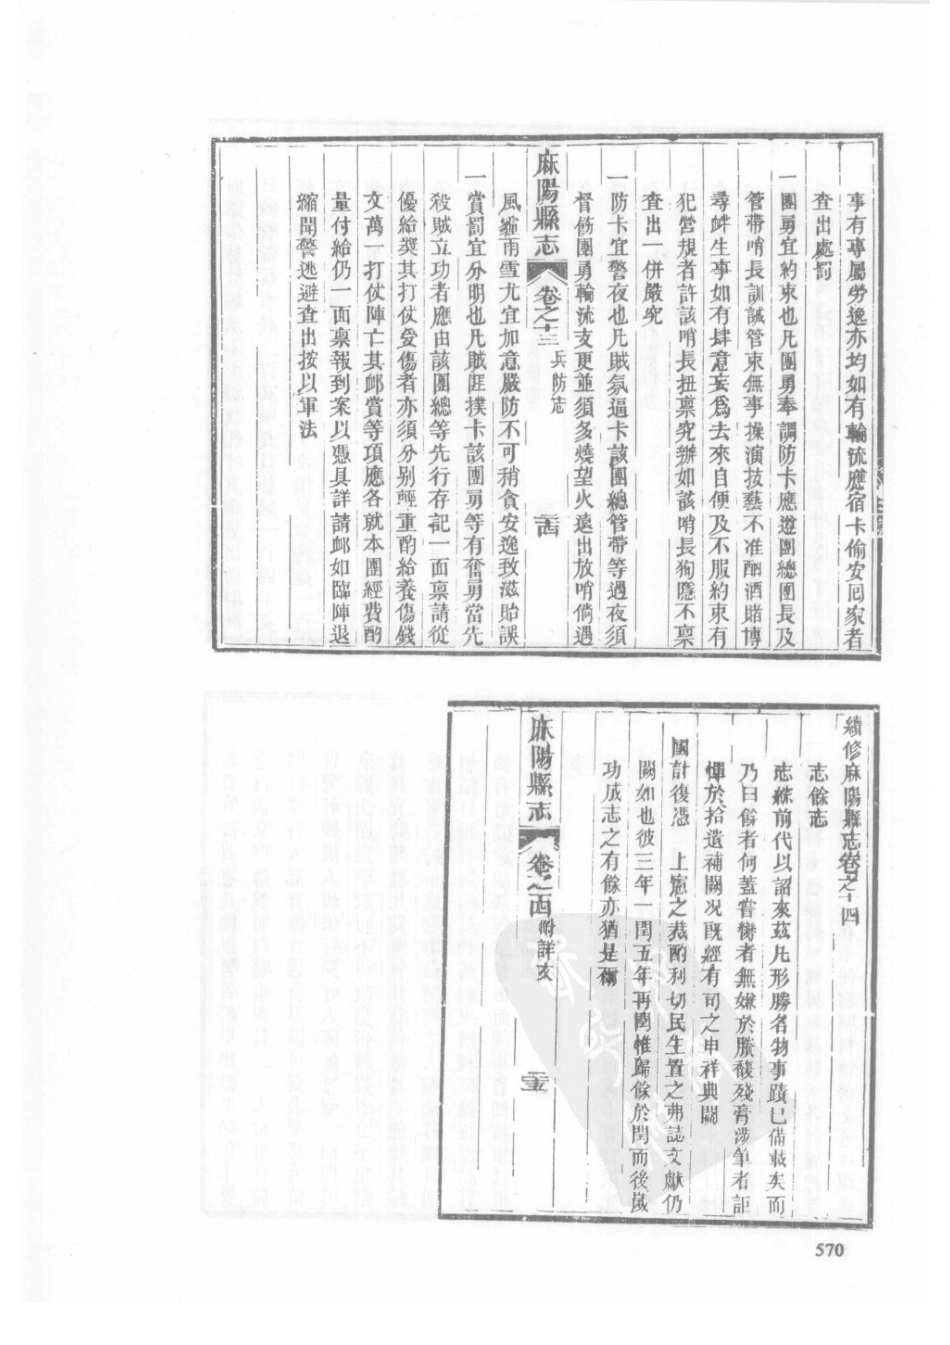 事有專屬勞逸亦均如有輪流應宿卡偷安回家者
查出處罰
一團勇宜約束也凡團勇奉調防卡應遵團總團長及
管帶哨長訓誡管束無事操演技藝不准酗酒賭博
尋衅生事如有肆意妄為去來自便及不服約束有
犯營規者許該哨長扭稟究辦如該哨長狥隱不稟
查出一併嚴究
一防卡宜警夜也凡賊氛逼卡該團總管帶等過夜須
督飭團勇輪流支更並須多燒望火遠出放哨倘遇
麻陽縣志 卷之十三 兵防志 二十四
風霾雨雪尤宜加意嚴防不可稍貪安逸致滋貽誤
一賞罰宜分明也凡賊匪撲卡該團勇等有奮勇當先
殺賊立功者應由該團總等先行存記一面稟請從
優給奬其打仗受傷者亦須分别輕重酌給養傷錢
文萬一打仗陣亡其邮賞等項應各就本團經費酌
量付給仍一面稟報到案以憑具詳請邮如臨陣退
縮聞警逃避查出按以軍法
續修麻陽縣志卷之十四
志餘志
志綜前代以詔來茲凡形勝名物事蹟已備載矣而
乃曰餘者何蓋嘗臠者無嫌於賸馥殘膏涉筆者詎
憚於拾遺補闕况既經有司之申祥典關
國計復憑 上憲之裁酌利切民生置之弗誌文獻仍
闕如也彼三年一閏五年再閏惟歸餘於閏而後歲
功成志之有餘亦猶是爾
麻陽縣志 卷之十四 附詳文 二十五
570